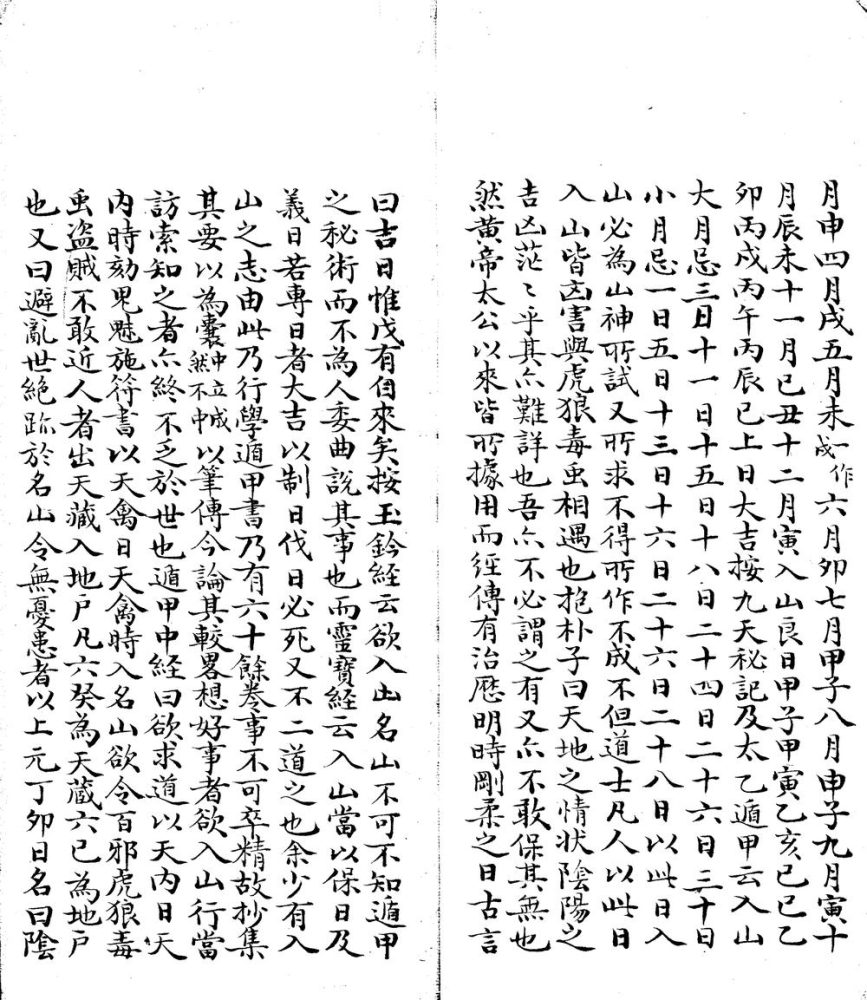 月申四月戌五月未一作戌六月卯七月甲子八月申子九月寅十
月辰未十一月已丑十二月寅入山良日甲子甲寅乙亥已巳乙
卯丙戌丙午丙辰已上日大吉按九天秘記及太乙遁甲云入山
大月忌三日十一日十五日十八日二十四日二十六日三十日
小月忌一日五日十三日十六日二十六日二十八日以此日入
山必為山神所試又所求不得所作不成不但道士凡人以此日
入山皆凶害與虎狼毒虫相遇也抱朴子曰天地之情状陰陽之
吉凶茫〻乎其亦難詳也吾亦不必謂之有又亦不敢保其無也
然黄帝太公以來皆所據用而經傳有治厯明時剛柔之日古言
曰吉日惟戊有自來矣按玉鈐經云欲入出名山不可不知遁甲
之秘術而不為人委曲說其事也而靈寶經云入山當以保日及
義日若専日者大吉以制日伐日必死又不二道之也余少有入
山之志由此乃行學遁甲書乃有六十餘卷事不可卒精故抄集
其要以為囊中立成然不中以筆傳今論其較畧想好事者欲入山行當
訪索知之者亦終不乏於世也遁甲中經曰欲求道以天内日天
内時劾鬼魅施符書以天禽日天禽時入名山欲令百邪虎狼毒
虫盗賊不敢近人者出天藏入地戸凡六癸為天藏六已為地戸
也又曰避亂世絶跡於名山令無憂患者以上元丁卯日名曰陰